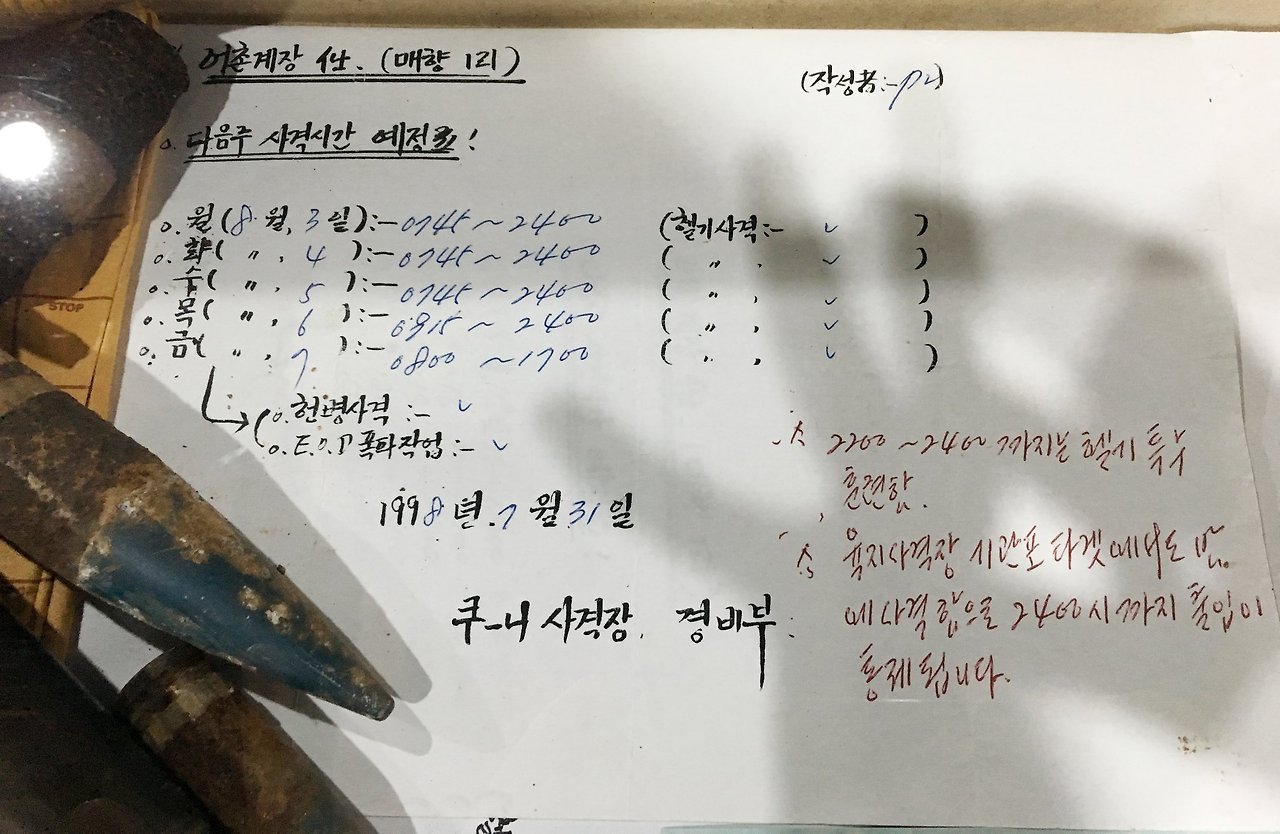 어촌계장 (매향 1리)
(작성者:-
o. 다음주 사격시간 예정표!
o. 월(8월, 3일):- 0745 ~ 2400 (헬기사격:- ✓ )
o. 화( 〃, 4 ):- 0745 ~ 2400 ( 〃, ✓ )
o. 수( 〃, 5 ):- 0745 ~ 2400 ( 〃, ✓ )
o. 목( 〃, 6 ):- 0915 ~ 2400 ( 〃, ✓ )
o. 금( 〃, 7 ):- 0800 ~ 1700 ( 〃, ✓ )
o. 헌병사격:- ✓
o. E.O.D 폭타작업:- ✓
1998년. 7월 31일
쿠-니 사격장. 경비부:
2200 ~ 2400 까지는 헬기 특수
훈련함.
육지사격장 시간포 타겟에서도 밤
에 사격함으로 2400시까지 출입이
통제됩니다.
STOP